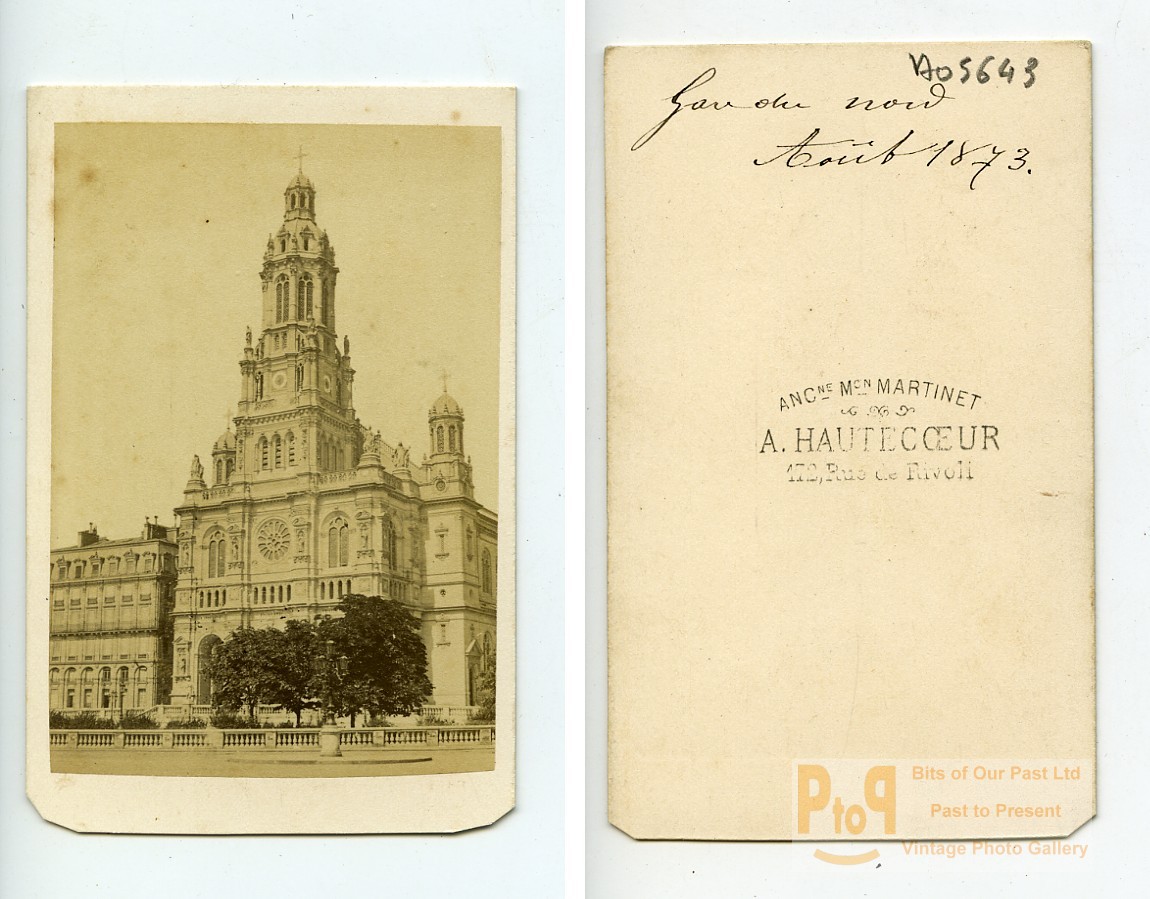 A05643
Gare du nord
Août 1873.
ANCNE MON MARTINET
A. HAUTECŒUR
172, Rue de Rivoli
PtoP
Bits of Our Past Ltd
Past to Present
Vintage Photo Gallery